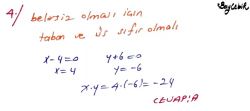 4/ belirsiz olması için
taban ve üs sıfır olmalı
x-4=0 y+6=0
x=4 y=-6
x.y=4.(-6)=-24
CEVAP:A